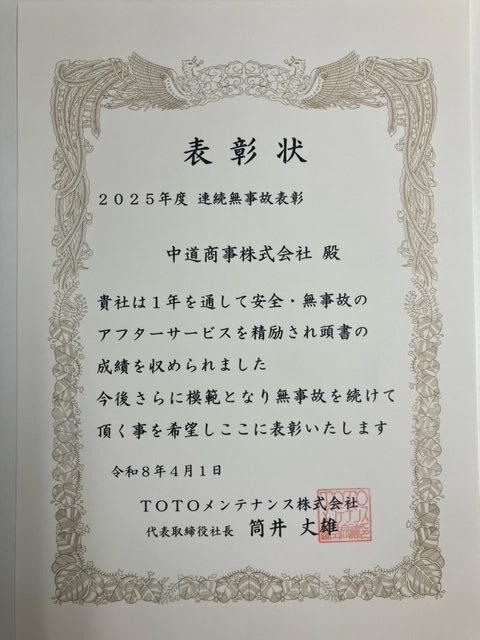 表彰状
２０２５年度 連続無事故表彰
中道商事株式会社 殿
貴社は１年を通して安全・無事故の
アフターサービスを精励され頭書の
成績を収められました
今後さらに模範となり無事故を続けて
頂く事を希望しここに表彰いたします
令和８年４月１日
ＴＯＴＯメンテナンス株式会社
代表取締役社長 筒井 丈雄